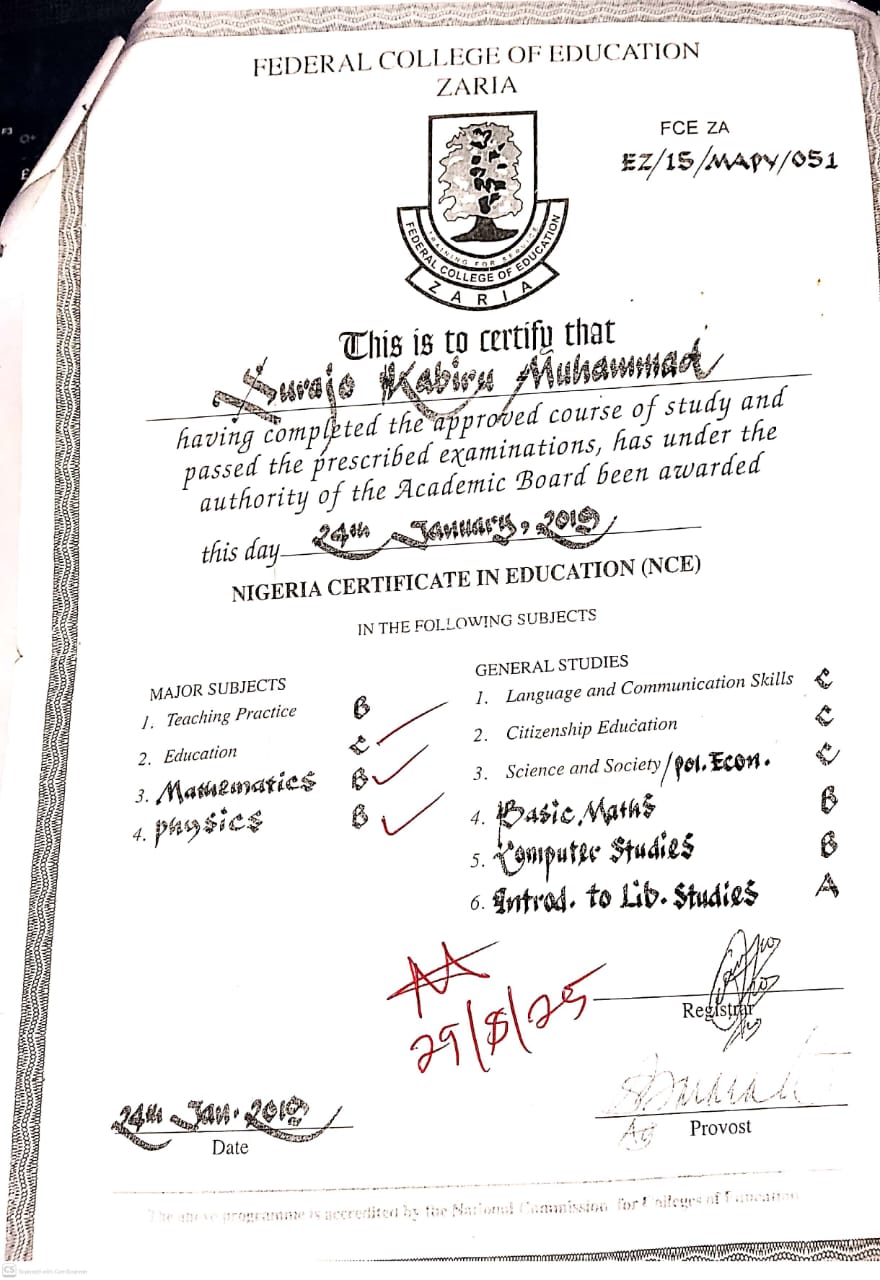 FEDERAL COLLEGE OF EDUCATION
ZARIA
FCE ZA
EZ/15/MAPY/051
TRAINING FOR SERVICE
FEDERAL COLLEGE OF EDUCATION
ZARIA
This is to certify that
Surajo Kabiru Muhammad
having completed the approved course of study and
passed the prescribed examinations, has under the
authority of the Academic Board been awarded
this day 24th January, 2019
NIGERIA CERTIFICATE IN EDUCATION (NCE)
IN THE FOLLOWING SUBJECTS
MAJOR SUBJECTS
1. Teaching Practice B
2. Education C
3. Mathematics B
4. physics B
GENERAL STUDIES
1. Language and Communication Skills C
2. Citizenship Education C
3. Science and Society/pol.Econ. C
4. Basic Maths B
5. Computer Studies B
6. Introd. to Lib. Studies A
29/8/25
Registrar
24th Jan. 2019
Date
Provost
The above programme is accredited by the National Commission for Colleges of Education
CS Scanned with CamScanner